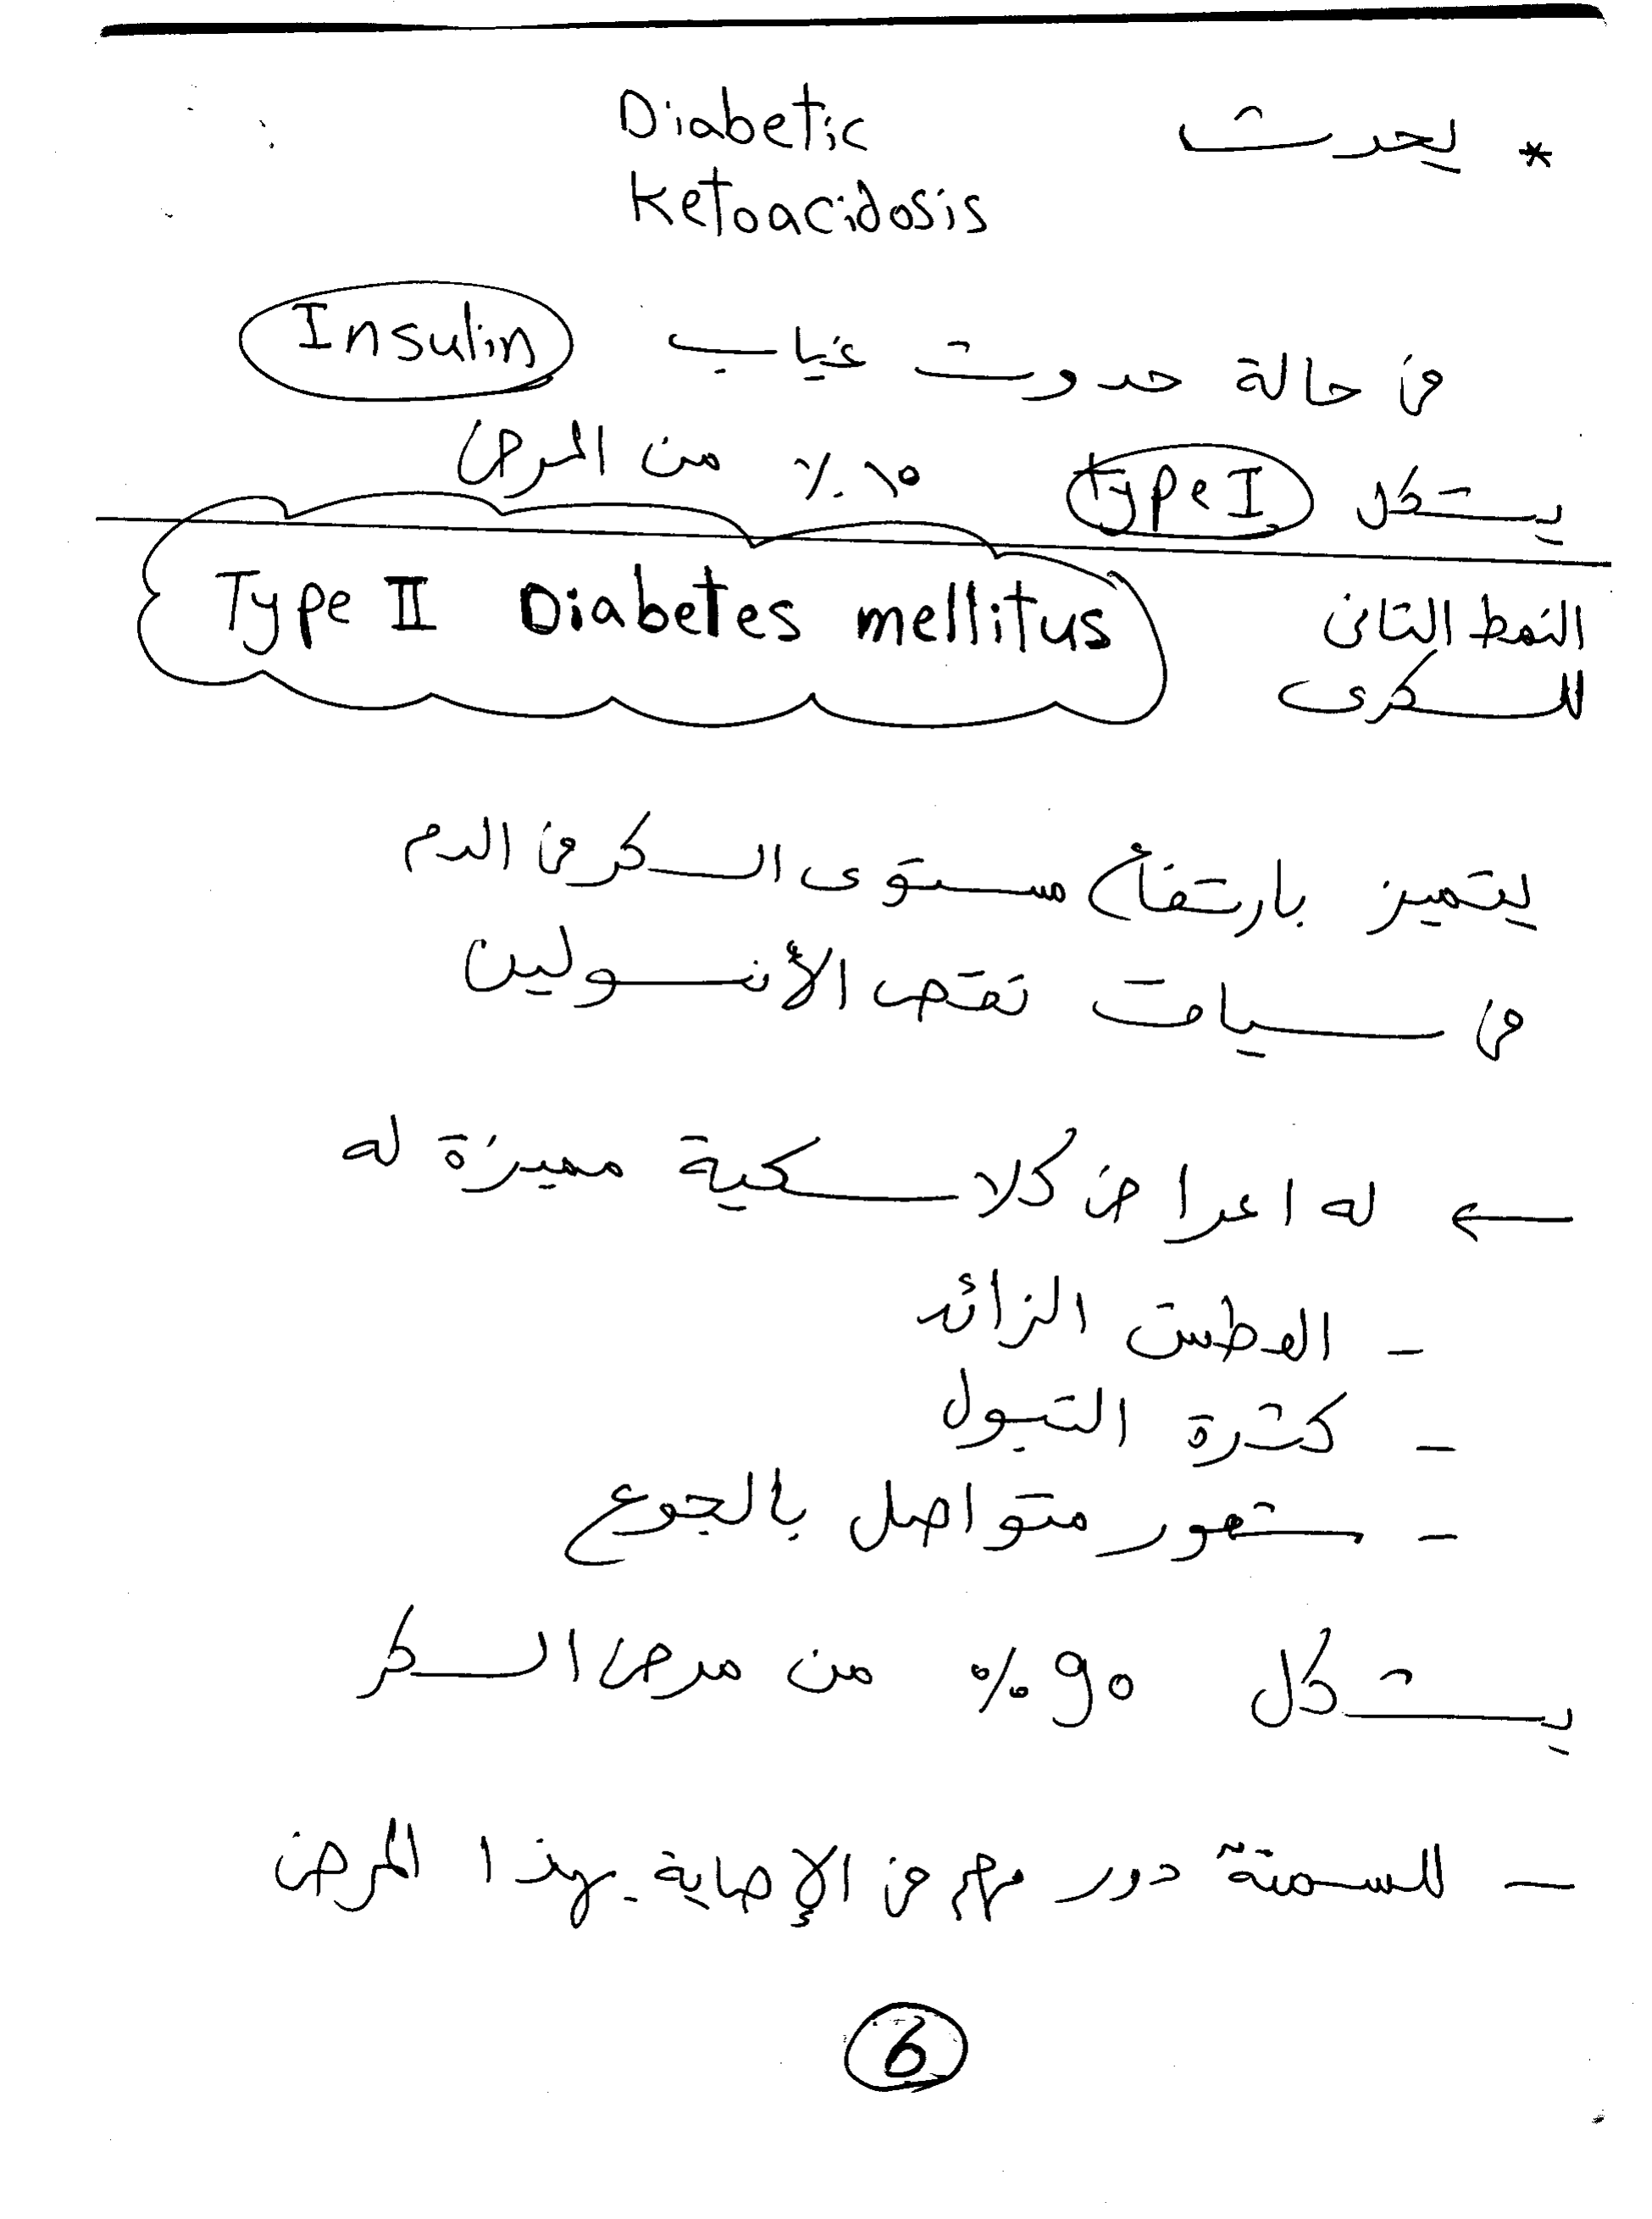 * يحدث Diabetic
Ketoacidosis
في حالة حدوث غياب Insulin
يشكل Type I 10 % من المرض
النمط الثاني Type II Diabetes mellitus
للسكرى
يتميز بارتفاع مستوى السكر في الدم
في سياق نقص الأنسولين
← له اعراض كلاسكية مميزة له
- العطش الزائد
- كثرة التبول
- شعور متواصل بالجوع
يشكل 90 % من مرض السكر
- للسمنة دور مهم في الإصابة بهذا المرض
6